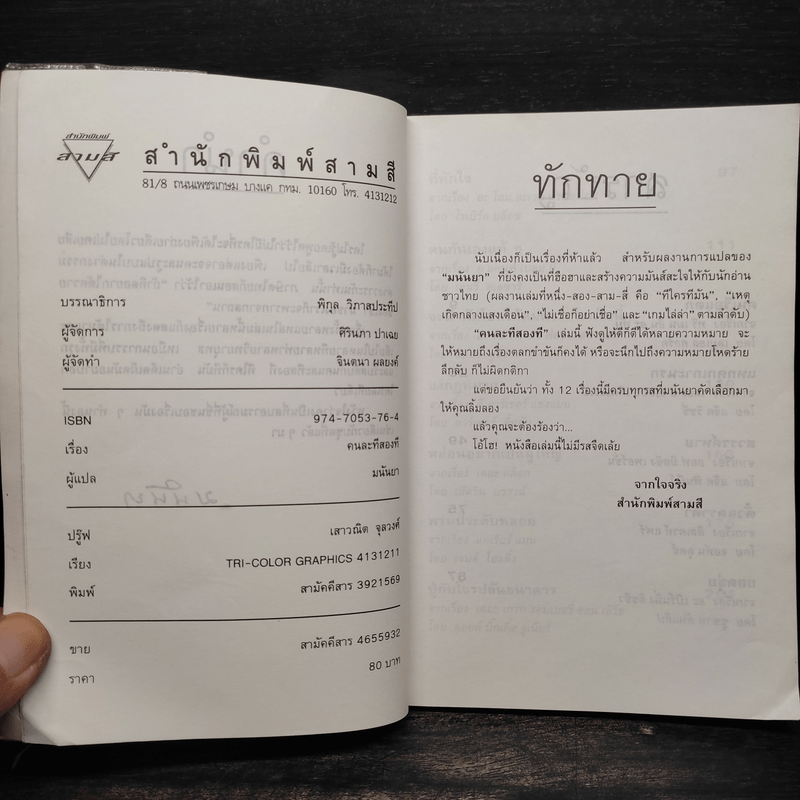 สำนักพิมพ์
สามสี
สำนักพิมพ์สามสี
81/8 ถนนเพชรเกษม บางแค กทม. 10160 โทร. 4131212
บรรณาธิการ พิกุล วิภาสประทีป
ผู้จัดการ ศิรินภา ปาเฉย
ผู้จัดทำ จินตนา ผลยงค์
ISBN 974-7053-76-4
เรื่อง คนละทีสองที
ผู้แปล มนันยา
ปรู๊ฟ เสาวณิต จุลวงศ์
เรียง TRI-COLOR GRAPHICS 4131211
พิมพ์ สามัคคีสาร 3921569
ขาย สามัคคีสาร 4655932
ราคา 80 บาท
ทักทาย
นับเนื่องก็เป็นเรื่องที่ห้าแล้ว สำหรับผลงานการแปลของ
"มนันยา" ที่ยังคงเป็นที่ฮือฮาและสร้างความมันส์สะใจให้กับนักอ่าน
ชาวไทย (ผลงานเล่มที่หนึ่ง-สอง-สาม-สี่ คือ "ทีใครทีมัน", "เหตุ
เกิดกลางแสงเดือน", "ไม่เชื่อก็อย่าเชื่อ" และ "เกมไล่ล่า" ตามลำดับ)
"คนละทีสองที" เล่มนี้ ฟังดูให้ดีก็ตีได้หลายความหมาย จะ
ให้หมายถึงเรื่องตลกขำขันก็คงได้ หรือจะนึกไปถึงความหมายโหดร้าย
ลึกลับ ก็ไม่ผิดกติกา
แต่ขอยืนยันว่า ทั้ง 12 เรื่องนี้มีครบทุกรสที่มนันยาคัดเลือกมา
ให้คุณลิ้มลอง
แล้วคุณจะต้องร้องว่า...
โอ้โฮ! หนังสือเล่มนี้ไม่มีรสจืดเลย
จากใจจริง
สำนักพิมพ์สามสี